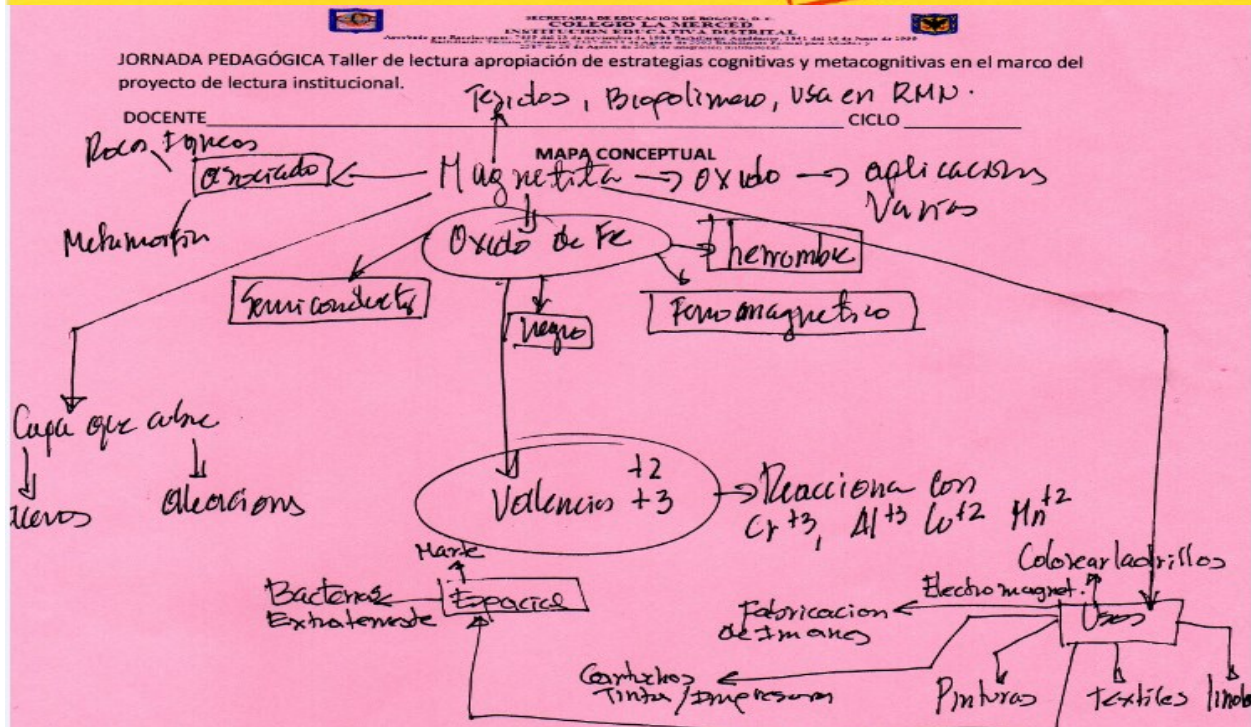 SECRETARIA DE EDUCACION DE BOGOTA, D. C.
COLEGIO LA MERCED
INSTITUCION EDUCATIVA DISTRITAL
JORNADA PEDAGÓGICA Taller de lectura apropiación de estrategias cognitivas y metacognitivas en el marco del
proyecto de lectura institucional.
Tejidos, Biopolimero, Usa en RMN.
DOCENTE CICLO
MAPA CONCEPTUAL
Rocas Igneas
asociado
Magnetita → Oxido → aplicaciones
Varias
Oxido de Fe
herrumbre
Semiconductor
negro
Ferromagnetico
Capa que cubre
aceros
aleaciones
Valencias +2
+3
Reacciona con
Cr+3, Al+3 Mn+2
Marte
Espacial
Bacterias
Extraterrestre
Colorear ladrillos
Electromagnet.
Usos
Fabricacion
de Imanes
Cartuchos
Tinta / Impresora
Pinturas
textiles